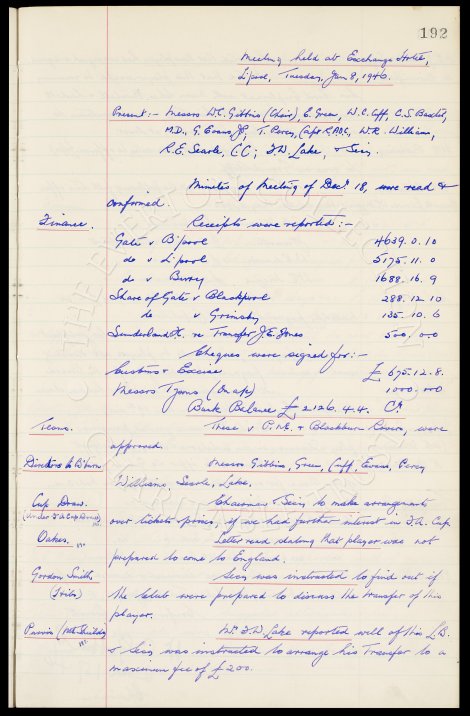 192
Meeting held at Exchange Hotel,
L'pool, Tuesday, Jan 8, 1946.
Present:- Messrs W.C. Gibbins (Chair), E. Green, W.C. Cuff, C.S. Baxter,
M.D., G. Evans JP, T. Percy, Capt R.A.M.C., W.R. Williams,
R.E. Searle, C.C; F.W. Lake, & Secy.
Minutes of Meeting of Decr. 18, were read &
confirmed.
Finance. Receipts were reported:-
Gate v B'pool 4639. 0. 10
do v L'pool 5175. 11. 0
do v Burey 1688. 16. 9
Share of Gate v Blackpool 288. 12. 10
do v Grimsby 135. 10. 6
Sunderland re Transfer J.E. Jones 500. 0. 0
Cheques were signed for:-
Customs & Excise £ 675. 12. 8.
Messrs Tysons (on a/c) 1000. 0. 0
Bank Balance £ 2126. 4. 4. Cr.
Teams. These v P.N.E. & Blackburn Rovers, were
approved.
Directors to B'burn Messrs Gibbins, Green, Cuff, Evans, Percy
Williams, Searle, Lake.
Cup Draw. Chairman & Secy to make arrangements
over tickets & prices, if we had further interest in F.A. Cup.
Oakes. Letter read stating that player was not
prepared to come to England.
Gordon Smith Secy was instructed to find out if
(Hibs) the Club were prepared to discuss the transfer of this
player.
Mr. F.W. Lake reported well of this L.B.
& Secy was instructed to arrange his Transfer to a
maximum fee of £ 200.